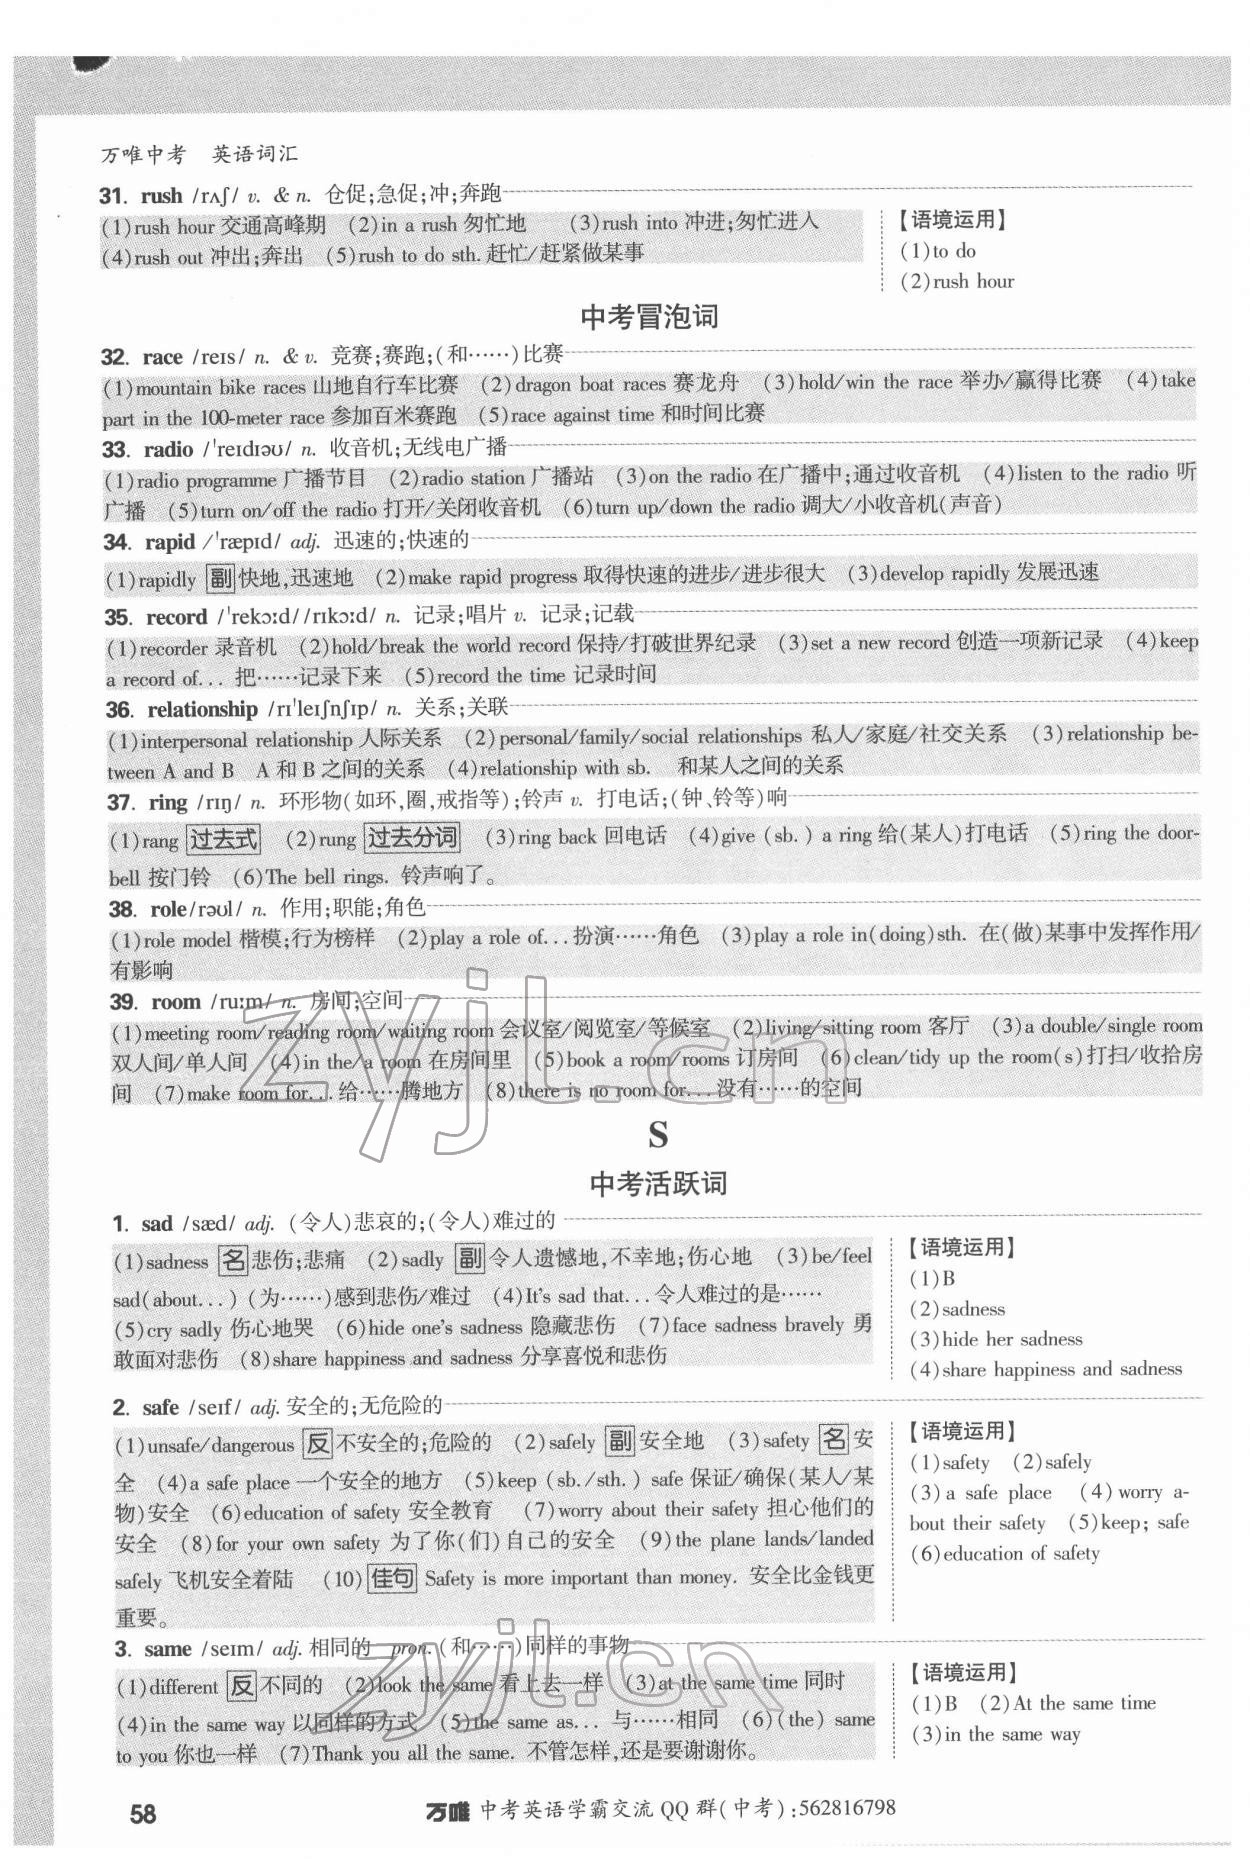 万唯中考 英语词汇
31. rush /rʌʃ/ v. & n. 仓促;急促;冲;奔跑
(1)rush hour 交通高峰期 (2)in a rush 匆忙地 (3)rush into 冲进;匆忙进入
(4)rush out 冲出;奔出 (5)rush to do sth. 赶忙/赶紧做某事
【语境运用】
(1)to do
(2)rush hour
中考冒泡词
32. race /reɪs/ n. & v. 竞赛;赛跑;(和……)比赛
(1)mountain bike races 山地自行车比赛 (2)dragon boat races 赛龙舟 (3)hold/win the race 举办/赢得比赛 (4)take
part in the 100-meter race 参加百米赛跑 (5)race against time 和时间比赛
33. radio /ˈreɪdɪəʊ/ n. 收音机;无线电广播
(1)radio programme 广播节目 (2)radio station 广播站 (3)on the radio 在广播中;通过收音机 (4)listen to the radio 听
广播 (5)turn on/off the radio 打开/关闭收音机 (6)turn up/down the radio 调大/小收音机(声音)
34. rapid /ˈræpɪd/ adj. 迅速的;快速的
(1)rapidly 副 快地,迅速地 (2)make rapid progress 取得快速的进步/进步很大 (3)develop rapidly 发展迅速
35. record /ˈrekɔːd//rɪkɔːd/ n. 记录;唱片 v. 记录;记载
(1)recorder 录音机 (2)hold/break the world record 保持/打破世界纪录 (3)set a new record 创造一项新记录 (4)keep
a record of... 把……记录下来 (5)record the time 记录时间
36. relationship /rɪˈleɪʃnʃɪp/ n. 关系;关联
(1)interpersonal relationship 人际关系 (2)personal/family/social relationships 私人/家庭/社交关系 (3)relationship be-
tween A and B A 和 B 之间的关系 (4)relationship with sb. 和某人之间的关系
37. ring /rɪŋ/ n. 环形物(如环,圈,戒指等);铃声 v. 打电话;(钟、铃等)响
(1)rang 过去式 (2)rung 过去分词 (3)ring back 回电话 (4)give (sb.) a ring 给(某人)打电话 (5)ring the door-
bell 按门铃 (6)The bell rings. 铃声响了。
38. role/rəʊl/ n. 作用;职能;角色
(1)role model 楷模;行为榜样 (2)play a role of... 扮演……角色 (3)play a role in(doing)sth. 在(做)某事中发挥作用/
有影响
39. room /ruːm/ n. 房间;空间
(1)meeting room/reading room/waiting room 会议室/阅览室/等候室 (2)living/sitting room 客厅 (3)a double/single room
双人间/单人间 (4)in the/a room 在房间里 (5)book a room/rooms 订房间 (6)clean/tidy up the room(s)打扫/收拾房
间 (7)make room for... 给……腾地方 (8)there is no room for... 没有……的空间
S
中考活跃词
1. sad /sæd/ adj. (令人)悲哀的;(令人)难过的
(1)sadness 名 悲伤;悲痛 (2)sadly 副 令人遗憾地,不幸地;伤心地 (3)be/feel
sad(about...) (为……)感到悲伤/难过 (4)It's sad that... 令人难过的是……
(5)cry sadly 伤心地哭 (6)hide one's sadness 隐藏悲伤 (7)face sadness bravely 勇
敢面对悲伤 (8)share happiness and sadness 分享喜悦和悲伤
【语境运用】
(1)B
(2)sadness
(3)hide her sadness
(4)share happiness and sadness
2. safe /seɪf/ adj. 安全的;无危险的
(1)unsafe/dangerous 反 不安全的;危险的 (2)safely 副 安全地 (3)safety 名 安
全 (4)a safe place 一个安全的地方 (5)keep (sb./sth.) safe 保证/确保(某人/某
物)安全 (6)education of safety 安全教育 (7)worry about their safety 担心他们的
安全 (8)for your own safety 为了你(们)自己的安全 (9)the plane lands/landed
safely 飞机安全着陆 (10) 佳句 Safety is more important than money. 安全比金钱更
重要。
【语境运用】
(1)safety (2)safely
(3)a safe place (4)worry a-
bout their safety (5)keep; safe
(6)education of safety
3. same /seɪm/ adj. 相同的 pron. (和……)同样的事物
(1)different 反 不同的 (2)look the same 看上去一样 (3)at the same time 同时
(4)in the same way 以同样的方式 (5)the same as... 与……相同 (6)(the) same
to you 你也一样 (7)Thank you all the same. 不管怎样,还是要谢谢你。
【语境运用】
(1)B (2)At the same time
(3)in the same way
58
万唯 中考英语学霸交流 QQ 群(中考):562816798
zyjl.cn
zyjl.cn